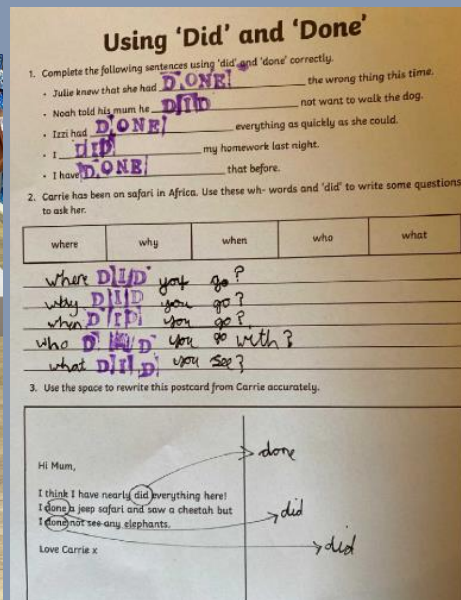 Using 'Did' and 'Done'
1. Complete the following sentences using 'did' and 'done' correctly.
• Julie knew that she had DONE the wrong thing this time.
• Noah told his mum he DID not want to walk the dog.
• Izzi had DONE everything as quickly as she could.
• I DID my homework last night.
• I have DONE that before.
2. Carrie has been on safari in Africa. Use these wh- words and 'did' to write some questions
to ask her.
where why when who what
where DID you go?
why DID you go?
when DID you go?
who DID you go with?
what DID you see?
3. Use the space to rewrite this postcard from Carrie accurately.
done
Hi Mum,
I think I have nearly did everything here!
I done a jeep safari and saw a cheetah but
did
I done not see any elephants.
did
Love Carrie x